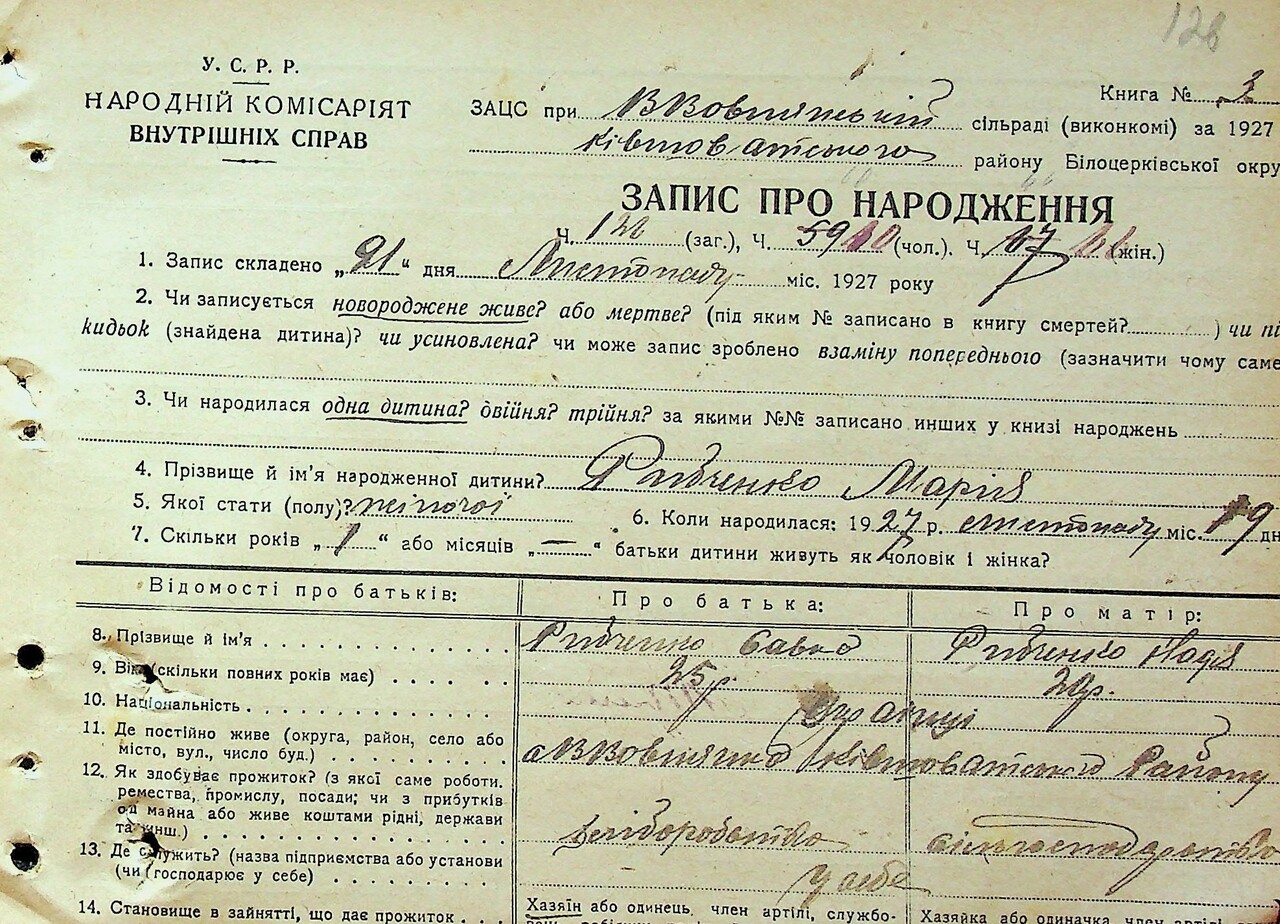 128
У. С. Р. Р.
НАРОДНІЙ КОМІСАРІЯТ
ВНУТРІШНІХ СПРАВ
Книга № 3
ЗАЦС при ВВовнянській сільраді (виконкомі) за 1927
Ківшоватського району Білоцерківської окру
ЗАПИС ПРО НАРОДЖЕННЯ
Ч. 128 (заг.), Ч. 59 60 (чол.). Ч. 67 68 (жін.)
1. Запис складено „21“ дня Листопаду міс. 1927 року
2. Чи записується новороджене живе? або мертве? (під яким № записано в книгу смертей? ) чи пі
кидьок (знайдена дитина)? чи усиновлена? чи може запис зроблено взаміну попереднього (зазначити чому саме
3. Чи народилася одна дитина? двійня? трійня? за якими №№ записано инших у книзі народжень
4. Прізвище й ім’я народженної дитини? Рибченко Марія
5. Якої стати (полу)? жіночої 6. Коли народилася: 1927 р. листопаду міс. 19 дн
7. Скільки років „1“ або місяців „—“ батьки дитини живуть як чоловік і жінка?
Відомості про батьків: Про батька: Про матір:
8. Прізвище й ім’я Рибченко Савка Рибченко Надія
9. Вік (скільки повних років має) 25 р. 20 р.
10. Національність Українці
11. Де постійно живе (округа, район, село або
місто, вул., число буд.) ВВовнянка Ківшоватського Району
12. Як здобуває прожиток? (з якої саме роботи.
ремества, промислу, посади; чи з прибутків
од майна або живе коштами рідні, держави
та инш.) хліборобство сільгосподарство
13. Де служить? (назва підприємства або установи
(чи господарює у себе) у себе
14. Становище в зайнятті, що дає прожиток
Хазяїн або одинець, член артілі, службо-
Хазяйка або одиначка, член артілі